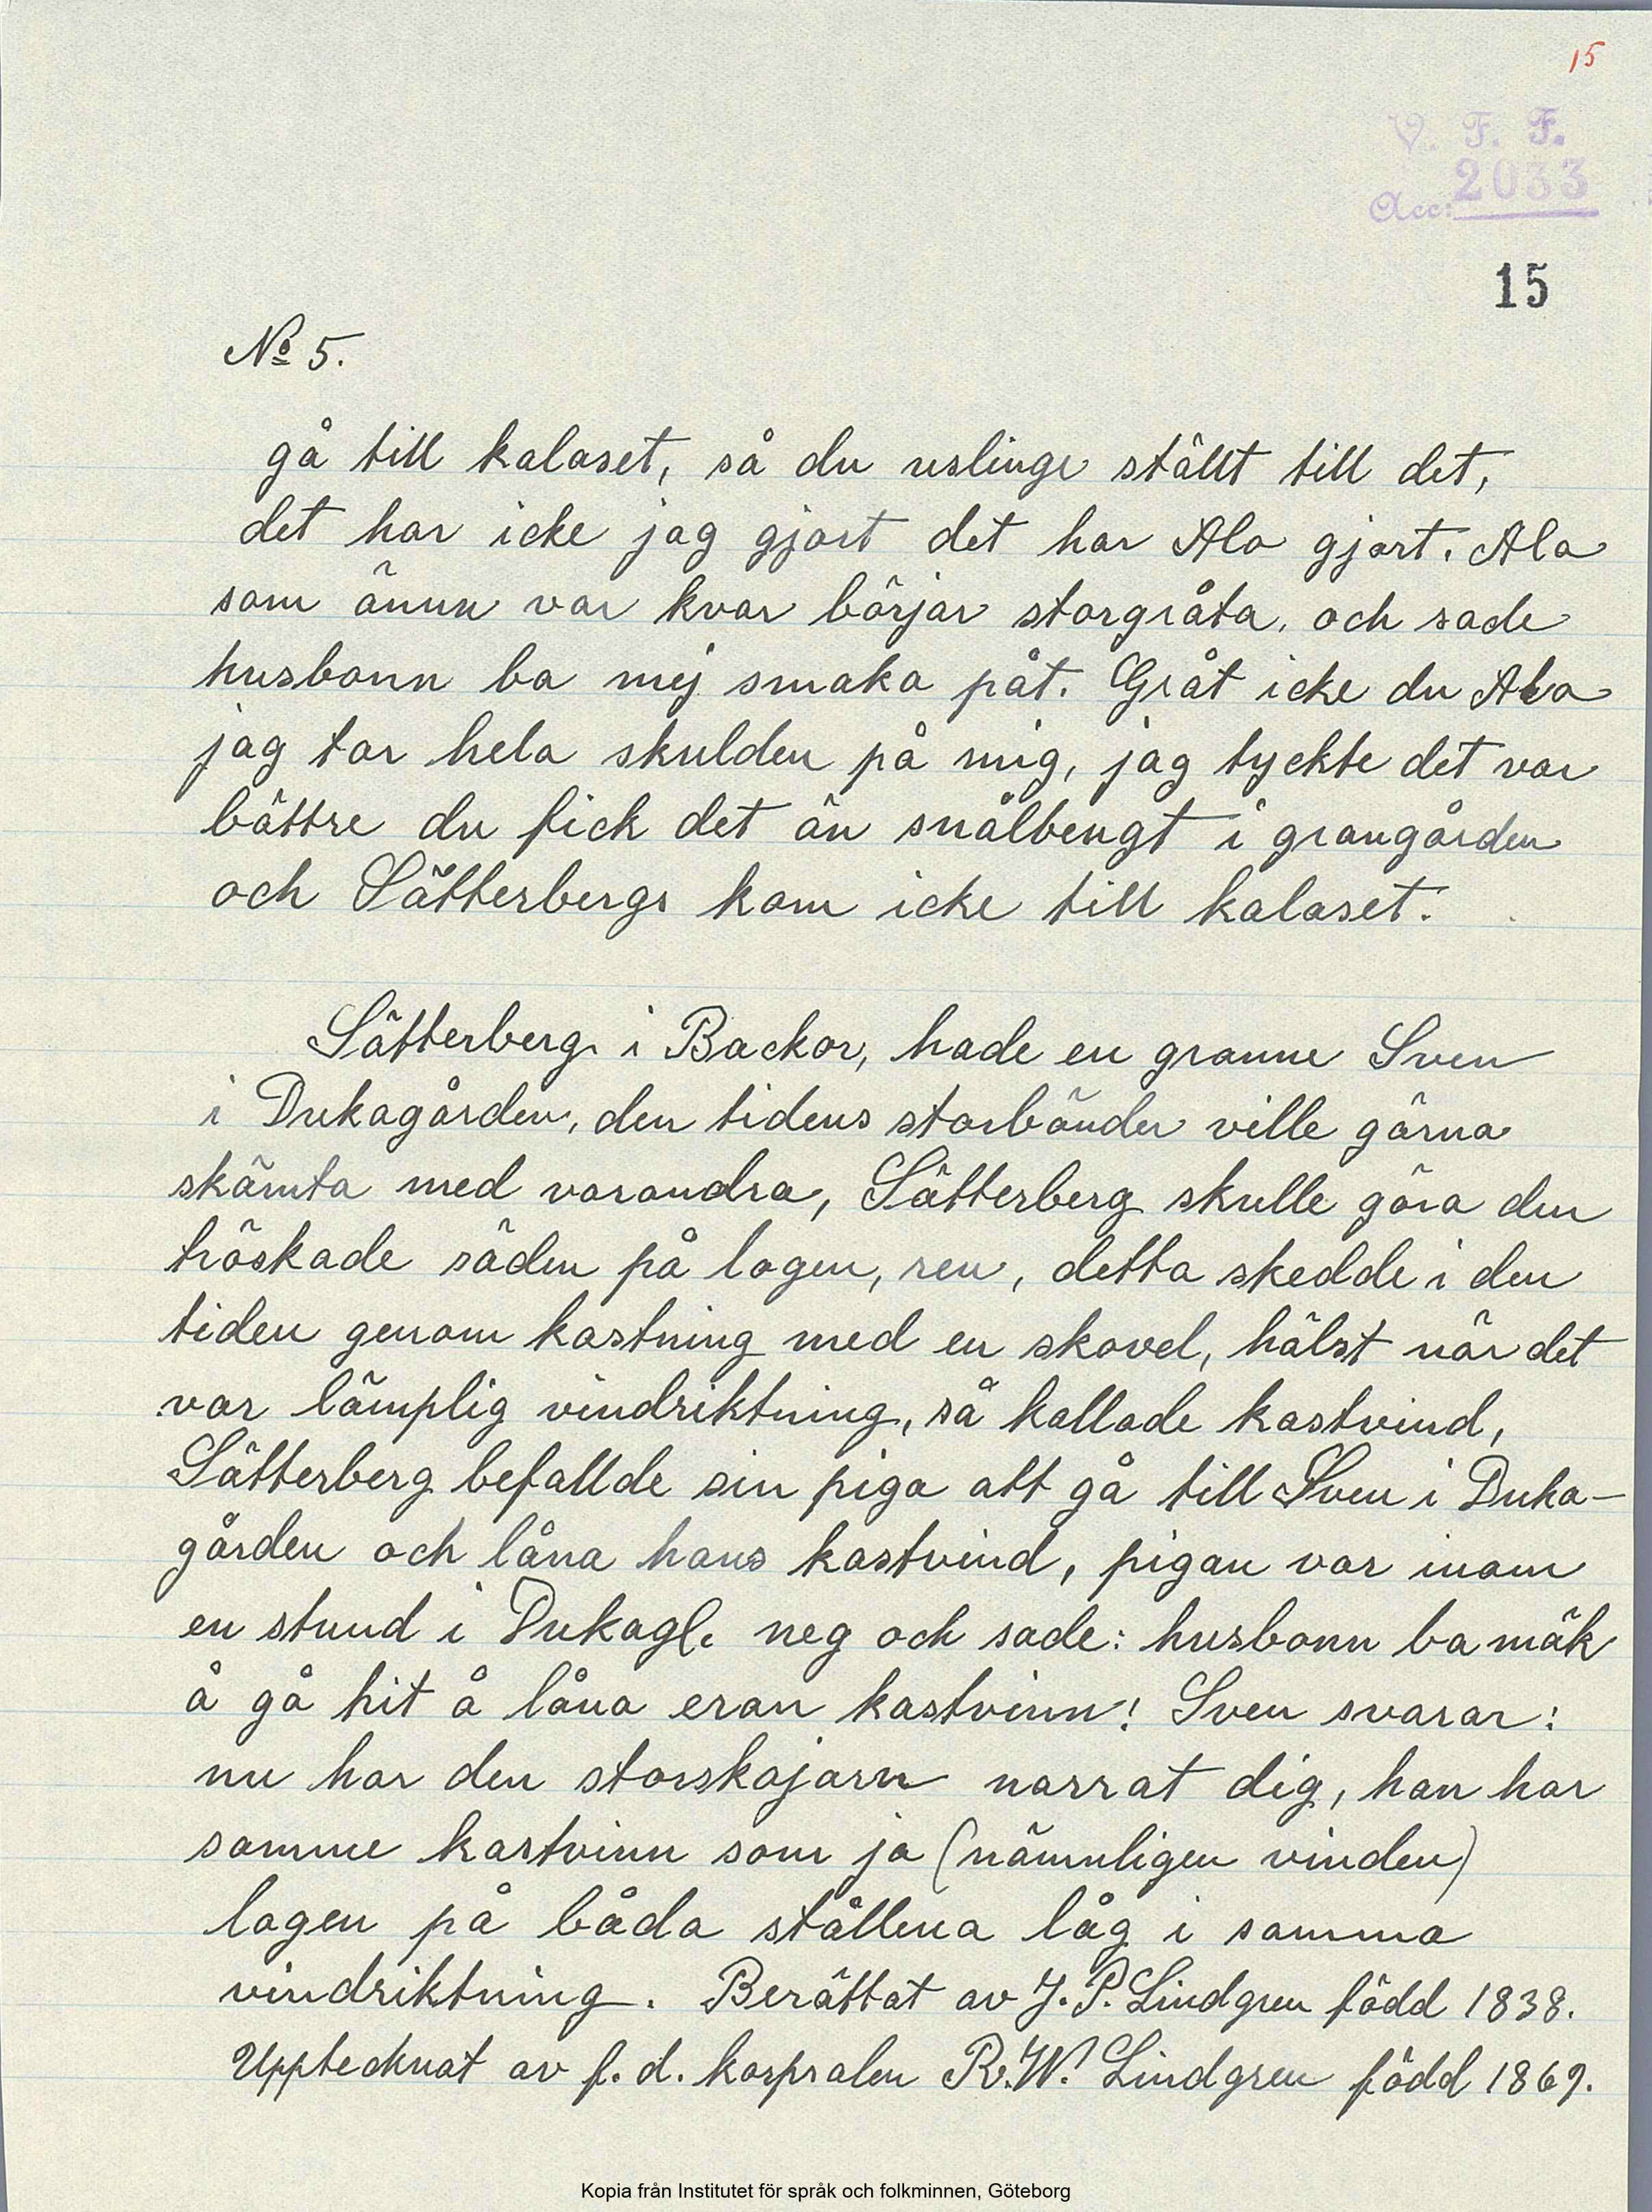 15
V. F. F.
Acc: 2033
15
No 5.
gå till kalaset, så du uslinge ställt till det,
det har icke jag gjort det har Ala gjort. Ala
som ännu var kvar börjar storgråta, och sade
husbonn ba mej smaka påt. Gråt icke du Ala
jag tar hela skulden på mig, jag tyckte det var
bättre du fick det än snålbengt i grangården
och Sätterbergs kom icke till kalaset.
Sätterberg i Backor, hade en granne Sven
i Dukagården, den tidens storbönder ville gärna
skämta med varandra, Sätterberg skulle göra den
tröskade säden på logen, ren, detta skedde i den
tiden genom kastning med en skovel, hälst när det
var lämplig vindriktning, så kallade kastvind,
Sätterberg befallde sin piga att gå till Sven i Duka-
gården och låna hans kastvind, pigan var inom
en stund i Dukagl. neg och sade: husbonn ba mäk
å gå hit å låna eran kastvinn! Sven svarar:
nu har den storskojarn narrat dig, han har
samme kastvinn som ja (nämnligen vinden)
logen på båda ställena låg i samma
vindriktning. Berättat av J. P. Lindgren född 1838.
Upptecknat av f. d. korpralen R. W. Lindgren född 1869.
Kopia från Institutet för språk och folkminnen, Göteborg